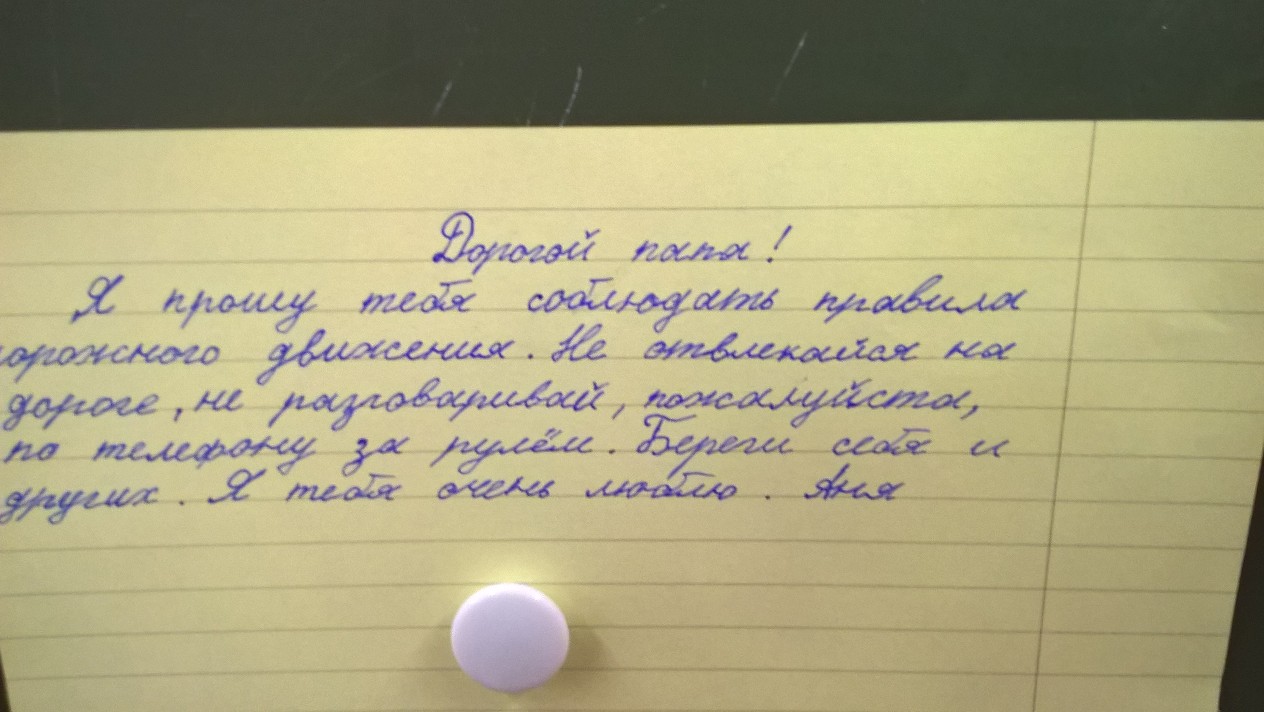 Дорогой папа!
Я прошу тебя соблюдать правила
орожного движения. Не отвлекайся на
дороге, не разговаривай, пожалуйста,
по телефону за рулём. Береги себя и
других. Я тебя очень люблю. Аня